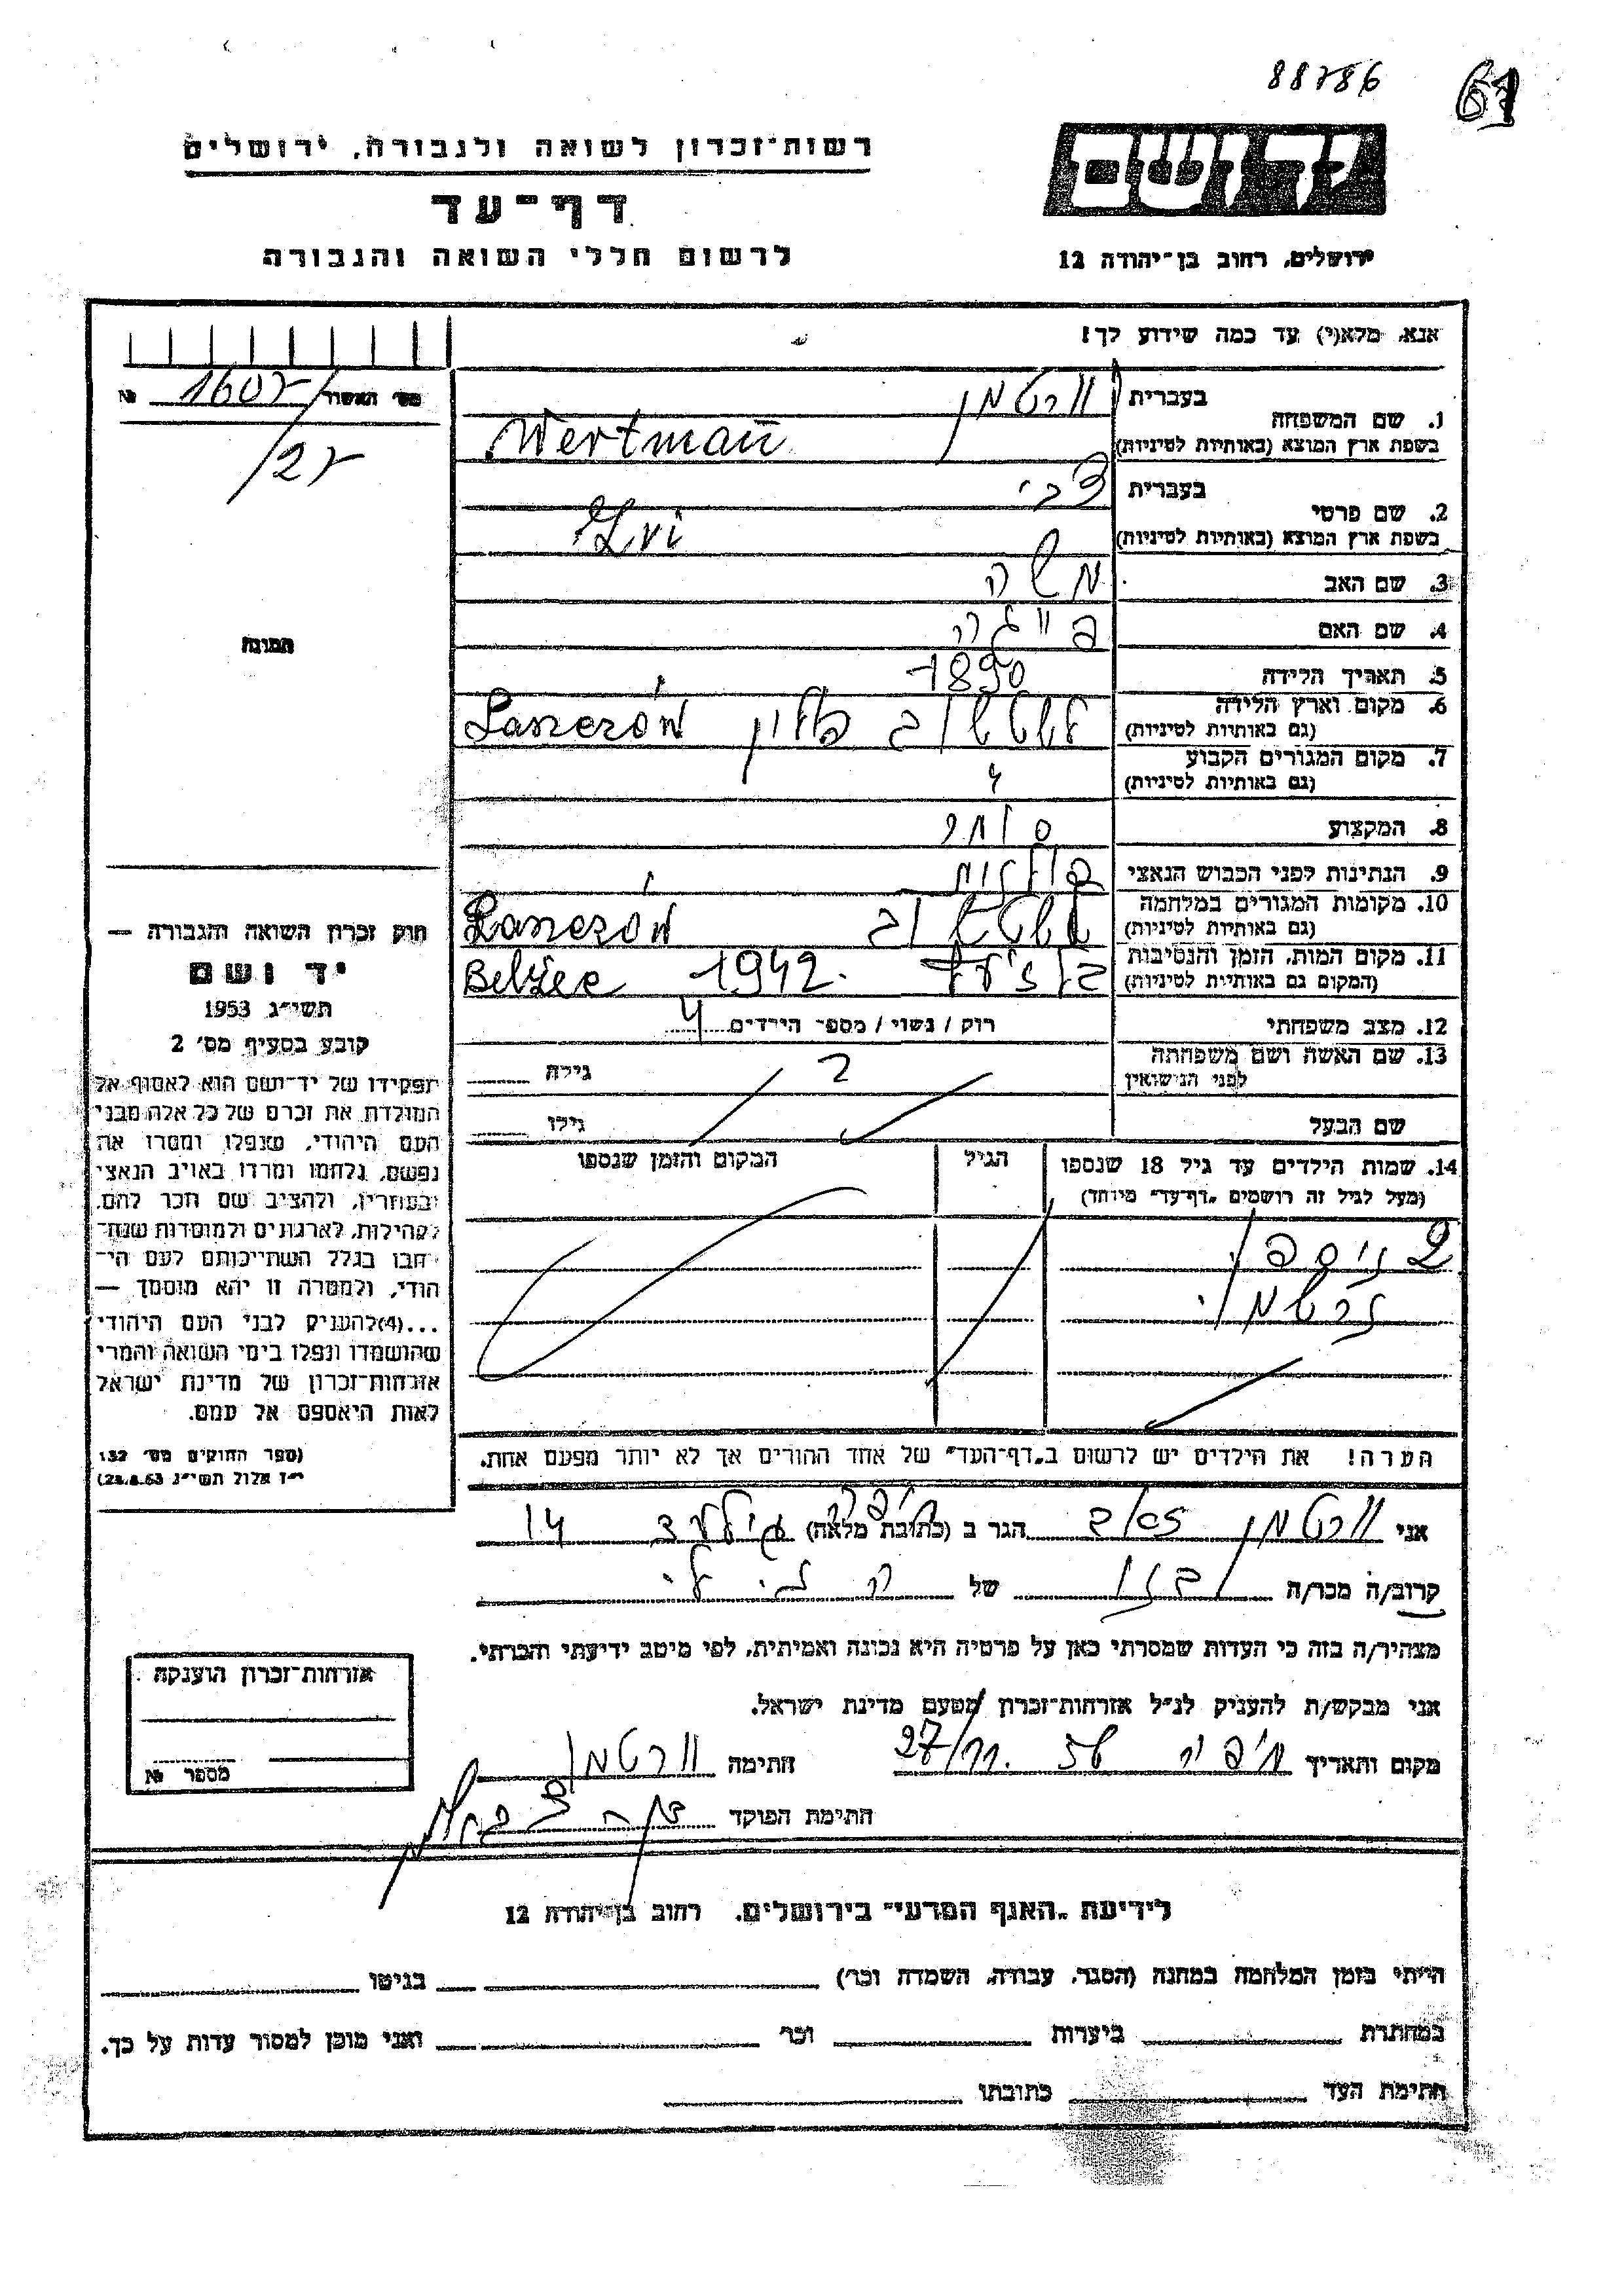 88786
61
רשות־זכרון לשואה ולגבורה, ירושלים
דף־עד
לרשום חללי השואה והגבורה
ידושם
ירושלים, רחוב בן־יהודה 12
אנא, מלא(י) עד כמה שידוע לך!
מס' האשה 1607 №
/27
תמונה
1. שם המשפחה
בעברית ורטמן
בשפת ארץ המוצא (באותיות לטיניות) Wertman
2. שם פרטי
בעברית צבי
בשפת ארץ המוצא (באותיות לטיניות) Zvi
3. שם האב משה
4. שם האם פייגה
5. תאריך הלידה 1890
6. מקום וארץ הלידה פולין Lanerów
(גם באותיות לטיניות)
7. מקום המגורים הקבוע
(גם באותיות לטיניות)
8. המקצוע סוחר
9. הנתינות לפני הכבוש הנאצי פולנית
10. מקומות המגורים במלחמה Lanerów
(גם באותיות לטיניות)
11. מקום המות, הזמן והנסיבות 1942. Belżec
(המקום גם באותיות לטיניות)
12. מצב משפחתי רוק / נשוי / מספר הילדים 4
13. שם האשה ושם משפחתה
לפני הנישואין גילה
שם הבעל גילו
14. שמות הילדים עד גיל 18 שנספו הגיל המקום והזמן שנספו
(מעל לגיל זה רושמים "דף־עד" מיוחד)
הערה! את הילדים יש לרשום ב"דף־העד" של אחד ההורים אך לא יותר מפעם אחת.
חוק זכרון השואה והגבורה —
יד ושם
תשי״ג 1953
קובע בסעיף מס׳ 2
תפקידו של יד־ושם הוא לאסוף אל
המולדת את זכרם של כל אלה מבני
העם היהודי, שנפלו ומסרו את
נפשם, נלחמו ומרדו באויב הנאצי
ובעוזריו, ולהציב שם וזכר להם,
לקהילות, לארגונים ולמוסדות שנח־
רבו בגלל השתייכותם לעם הי־
הודי, ולמטרה זו יהא מוסמך —
...(4) להעניק לבני העם היהודי
שהושמדו ונפלו בימי השואה והמרי
אזרחות־זכרון של מדינת ישראל
לאות היאספם אל עמם.
(ספר החוקים מס׳ 132
י״ז אלול תשי״ג 28.8.53)
אני ורטמן הגר ב (כתובת מלאה) חיפה 14
קרוב/ה מכר/ה של
מצהיר/ה בזה כי העדות שמסרתי כאן על פרטיה היא נכונה ואמיתית, לפי מיטב ידיעתי והכרתי.
אני מבקש/ת להעניק לנ״ל אזרחות־זכרון מטעם מדינת ישראל.
מקום ותאריך חיפה 27/11. 56 חתימה ורטמן
חתימת הפוקד
אזרחות־זכרון הוענקה
מספר №
לידיעת "האגף המדעי" בירושלים, רחוב בן־יהודה 12
הייתי בזמן המלחמה במחנה (הסגר, עבודה, השמדה וכו׳) בגיטו
במחתרת ביערות וכו׳ ואני מוכן למסור עדות על כך.
חתימת העד כתובתו